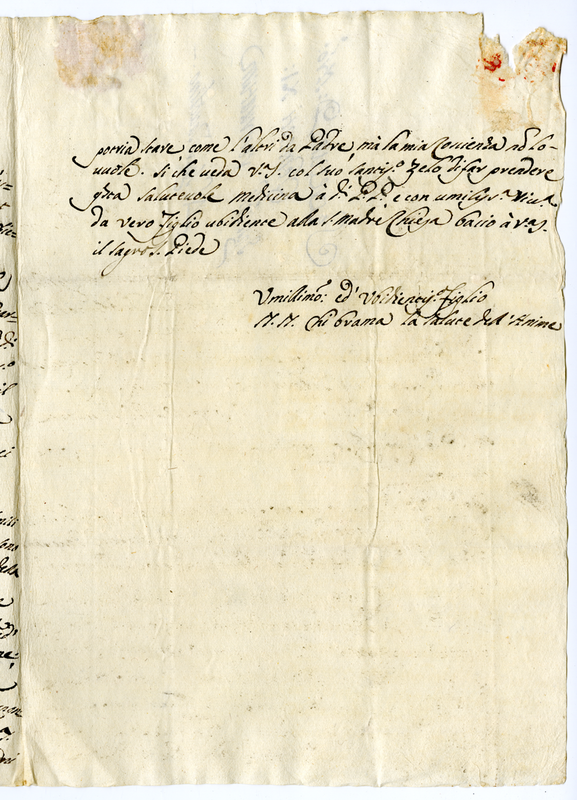 potria stare come l'altri da Padre, mà la mia Coscienza nō lo
vuole. si che veda V.S. col suo santis.º Zelo di far prendere
qsta salutevole medicina à dᵗⁱ P.P. e con umiliss.ª
da vero figlio ubidiente alla S. Madre Chiesa bacio à V.S.
il sagro S. Piede
Umilissimō: ed' Ubidientis.º figlio
N.N. chi brama la salute dell'Anime